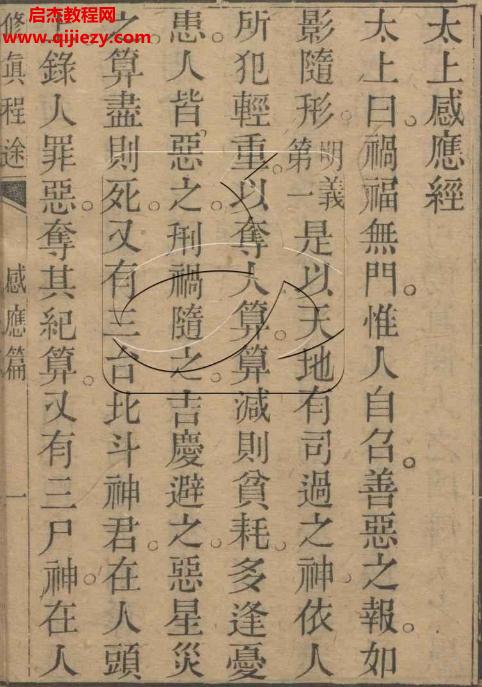 启杰教程网
www.qijiezy.com
太上感應經
太上曰。禍福無門。惟人自召。善惡之報。如
影隨形。明義第一是以天地有司過之神。依人
所犯輕重。以奪人算。算減則貧耗。多逢憂
患。人皆惡之。刑禍隨之。吉慶避之。惡星災
之。算盡則死。又有三台北斗神君。在人頭
上。錄人罪惡。奪其紀算。又有三尸神。在人
修真程途
感應篇
一